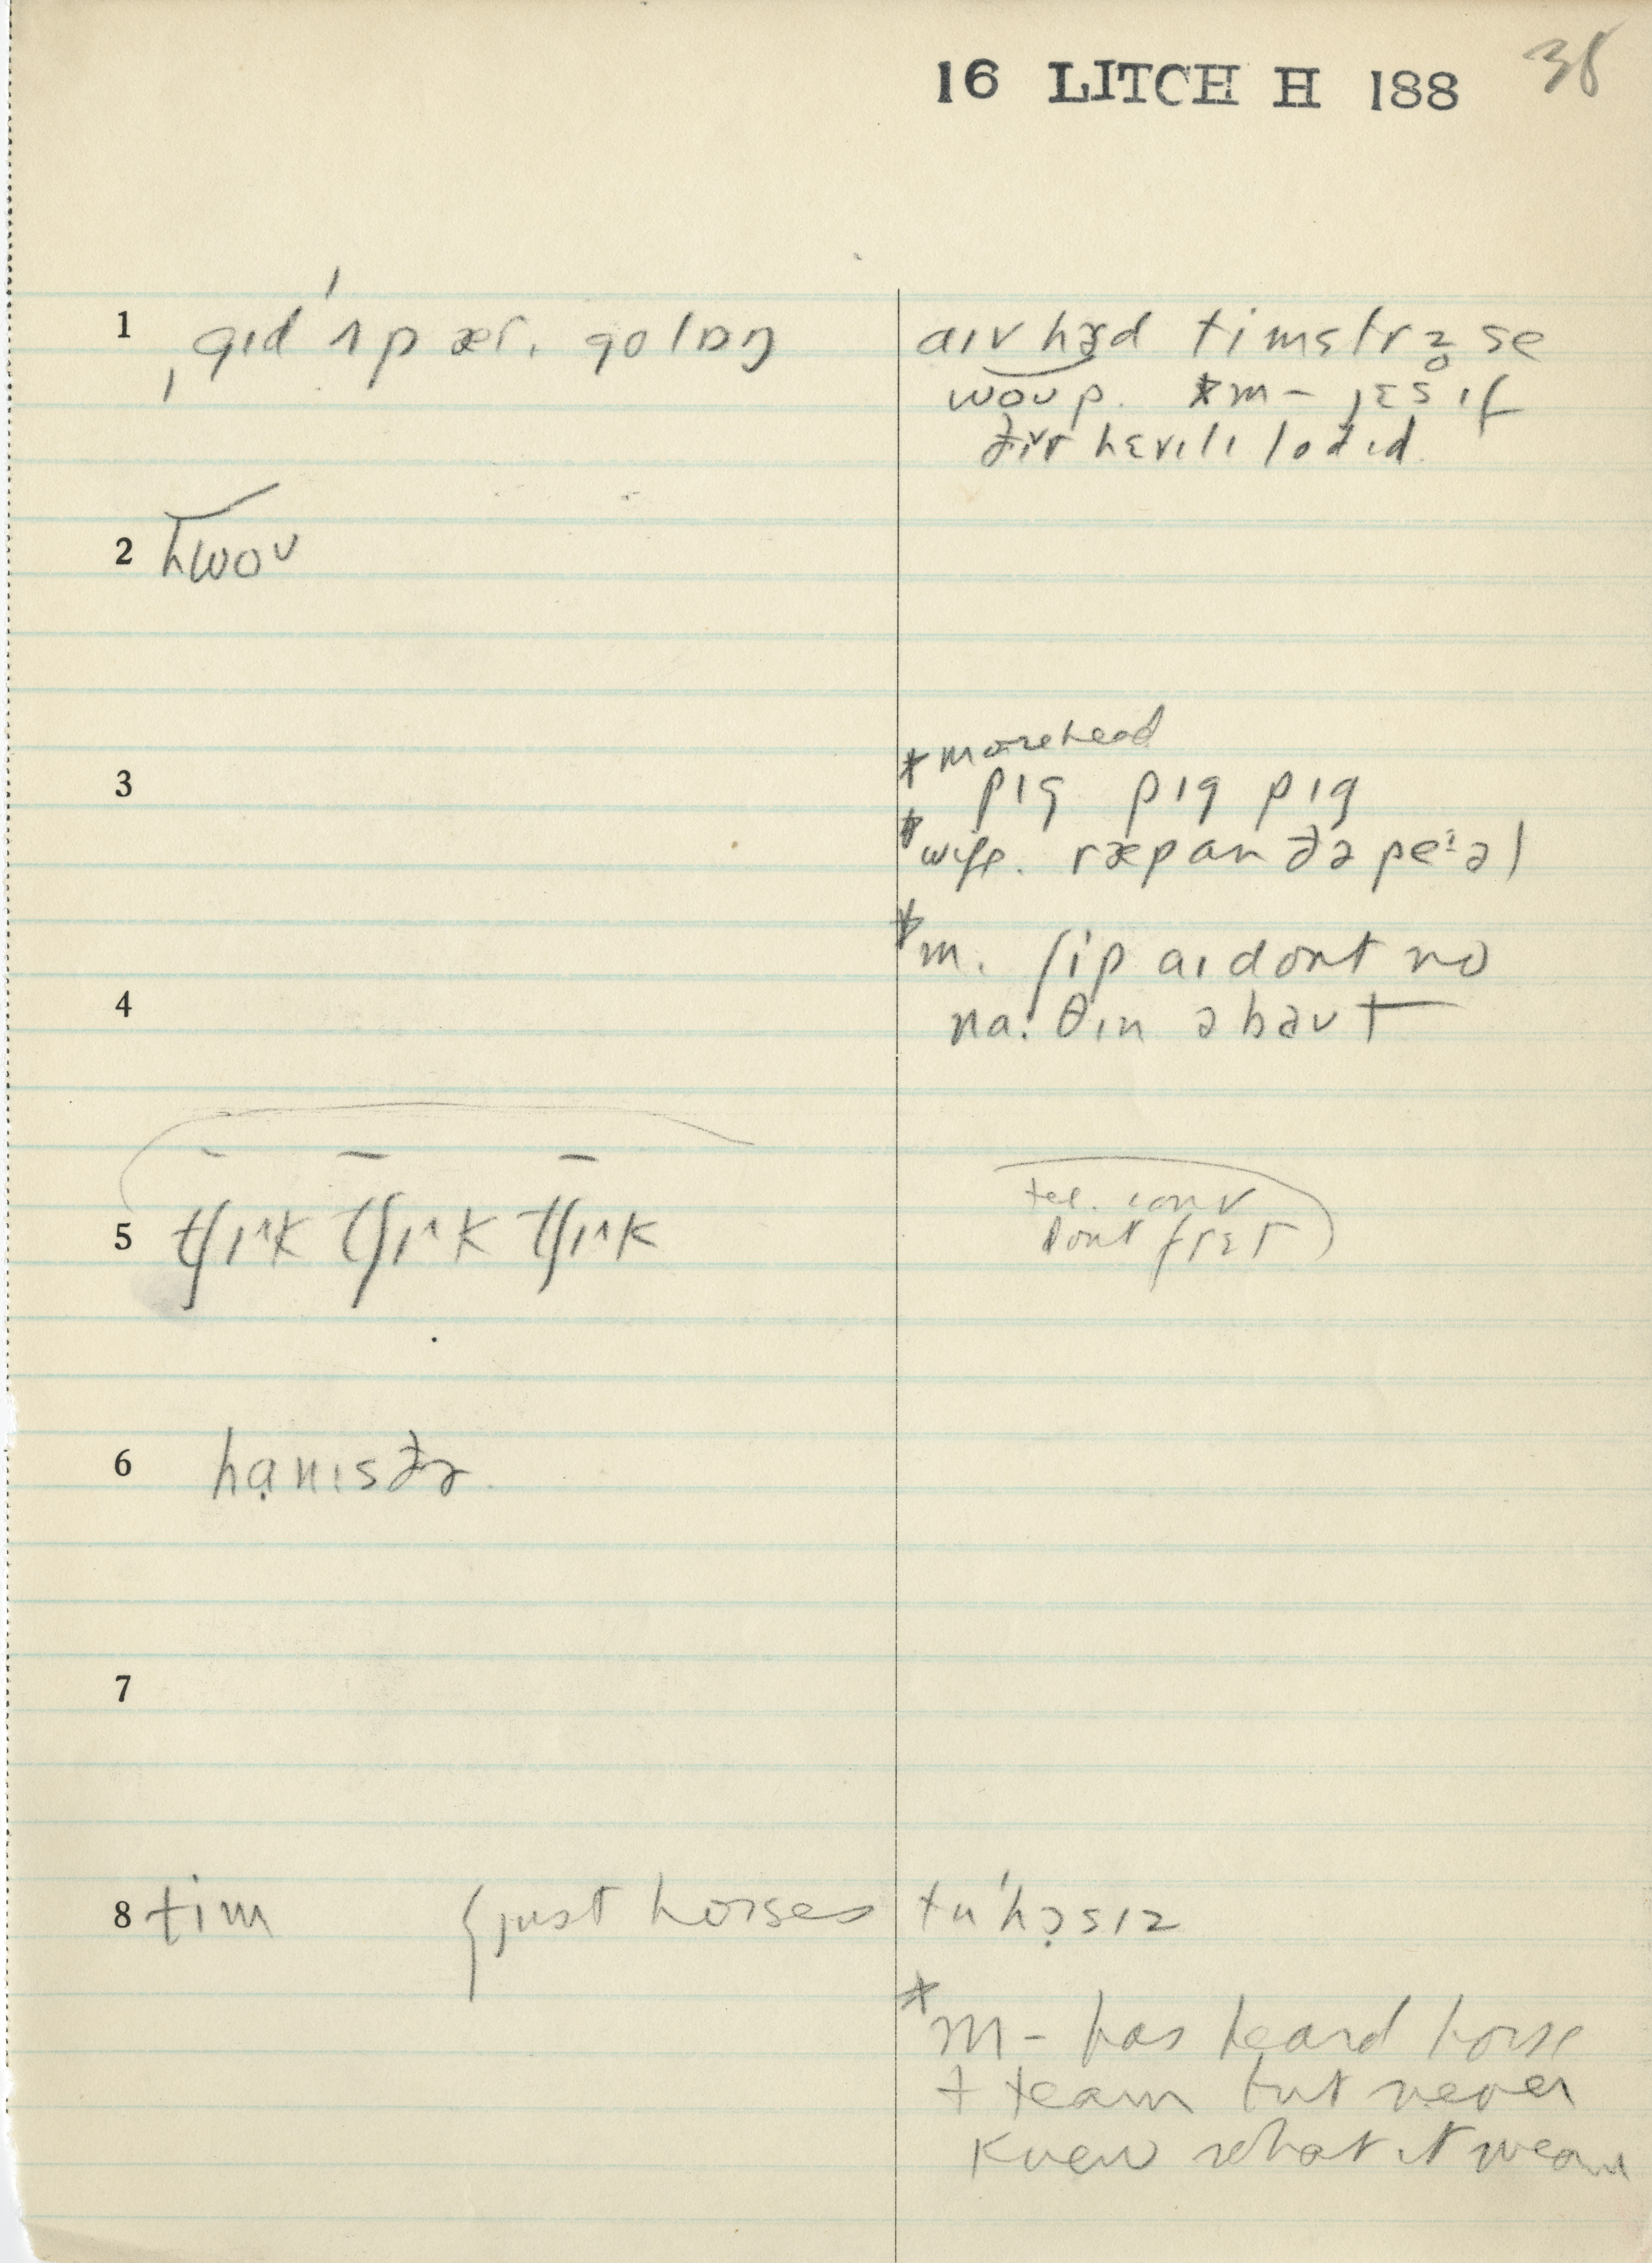 16 LITCH H 188
38
1 ˌgɪd ˈʌp ær. go lɒŋ
aɪv hɜd timstrz̥ se
woʊp. *m – jɛs ɪf
ðɪr hɛvɪlɪ lodɪd.
2 hwoʊ
3
*morehead
pɪg pɪg pɪg
*wife. ræp an ðə peːəl
*m. ʃip aɪ dont no
4 na.θɪn əbaʊt
5 tʃɪʌk tʃɪʌk tʃɪʌk
tel. conv
dont frɛt
6 hạnɪsðɚ
7
8 tim {just horses tuˈhɔ̣sɪz
*m – has heard horse
+ team but never
knew what it mean